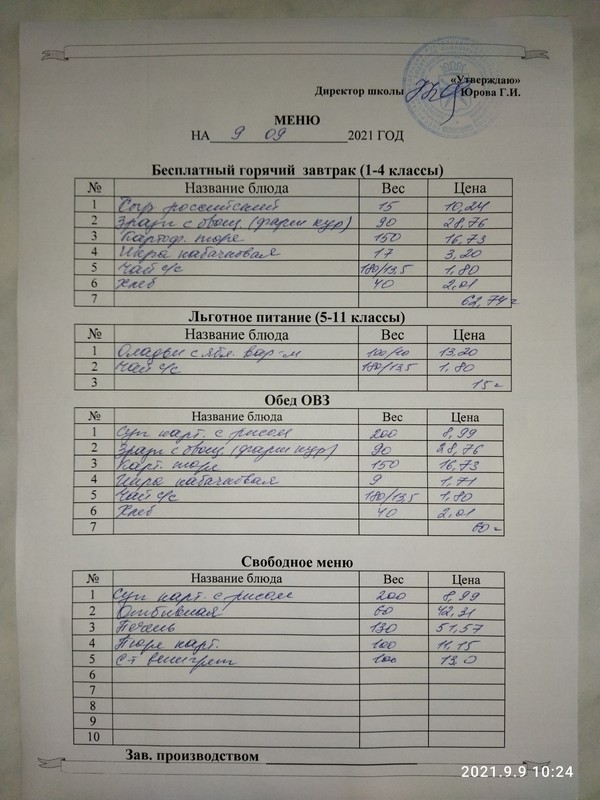 «Утверждаю»
Директор школы Юрова Г.И.
МЕНЮ
НА 9 09 2021 ГОД
Бесплатный горячий завтрак (1-4 классы)
№ Название блюда Вес Цена
1 Сыр российский 15 10,24
2 Зразы с овощ. (фарш кур) 90 28,76
3 Картоф. пюре 150 16,73
4 Икра кабачковая 17 3,20
5 Чай с/с 180/13,5 1,80
6 Хлеб 40 2,01
7 62,74
Льготное питание (5-11 классы)
№ Название блюда Вес Цена
1 Оладьи с ябл. вар-м 13,20
2 Чай с/с 180/13,5 1,80
3 15
Обед ОВЗ
№ Название блюда Вес Цена
1 Суп карт. с рисом 200 8,99
2 Зразы с овощ. (фарш кур) 90 28,76
3 Карт. пюре 150 16,73
4 Икра кабачковая 9 1,71
5 Чай с/с 180/13,5 1,80
6 Хлеб 40 2,01
7 60
Свободное меню
№ Название блюда Вес Цена
1 Суп карт. с рисом 200 8,99
2 Отбивная 60 42,31
3 Печень 130 51,57
4 Пюре карт. 100 11,15
5 С-т винегрет 100 13,0
6
7
8
9
10
Зав. производством
2021.9.9 10:24